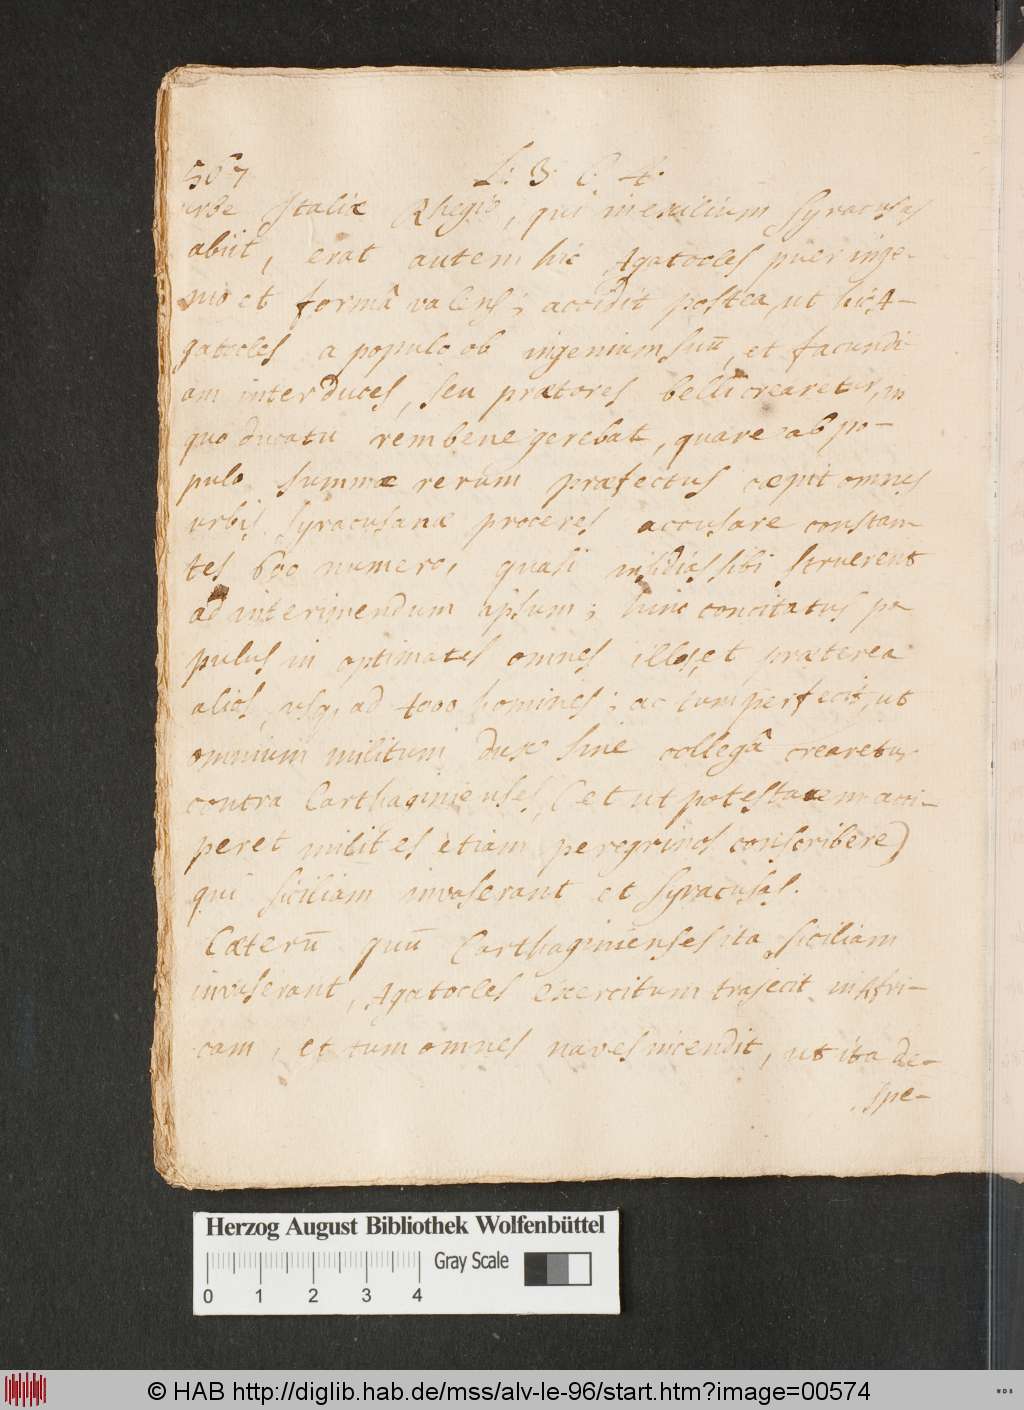 567 L: 3. C. 4.
urbe Italiæ Rhegio, qui in exilium Syracusas
abiit, erat autem hic Agatocles puer inge-
nio et formâ valens; accidit postea, ut hic A-
gatocles a populo ob ingenium suū, et facundi
am inter duces, seu prætores belli crearetur, in
quo ducatu rem bene gerebat, quare ab po-
pulo summæ rerum præfectus cæpit omnes
urbis Syracusanæ proceres accusare constan-
tes 600 numero, quasi insidias sibi struerent
ad interimendum ipsum; hinc concitatus po
pulus in optimates omnes illos, et præterea
alios usq, ad 4000 homines; ac tum perfecit, ut
omnium militum dux sine collegâ crearetur
contra Carthaginienses, (et ut potestatem acci-
peret milites etiam peregrinos conscribere)
qui siciliam invaserant et Syracusas.
Cæterū quū Carthaginienses ita siciliam
invaserant, Agatocles exercitum trajecit in Afri-
cam, et tum omnes naves incendit, ut ita de-
spe-
Herzog August Bibliothek Wolfenbüttel
Gray Scale
0 1 2 3 4
© HAB http://diglib.hab.de/mss/alv-le-96/start.htm?image=00574